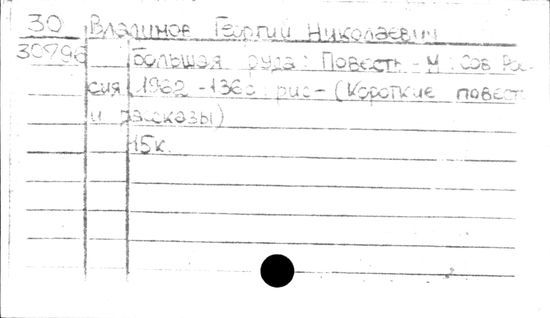 30 Владимов Георгий Николаевич
30796 Большая руда: Повесть.-М.:Сов Рос
сия, 1962 -136с.: рис-(Короткие повест
и рассказы)
15к.